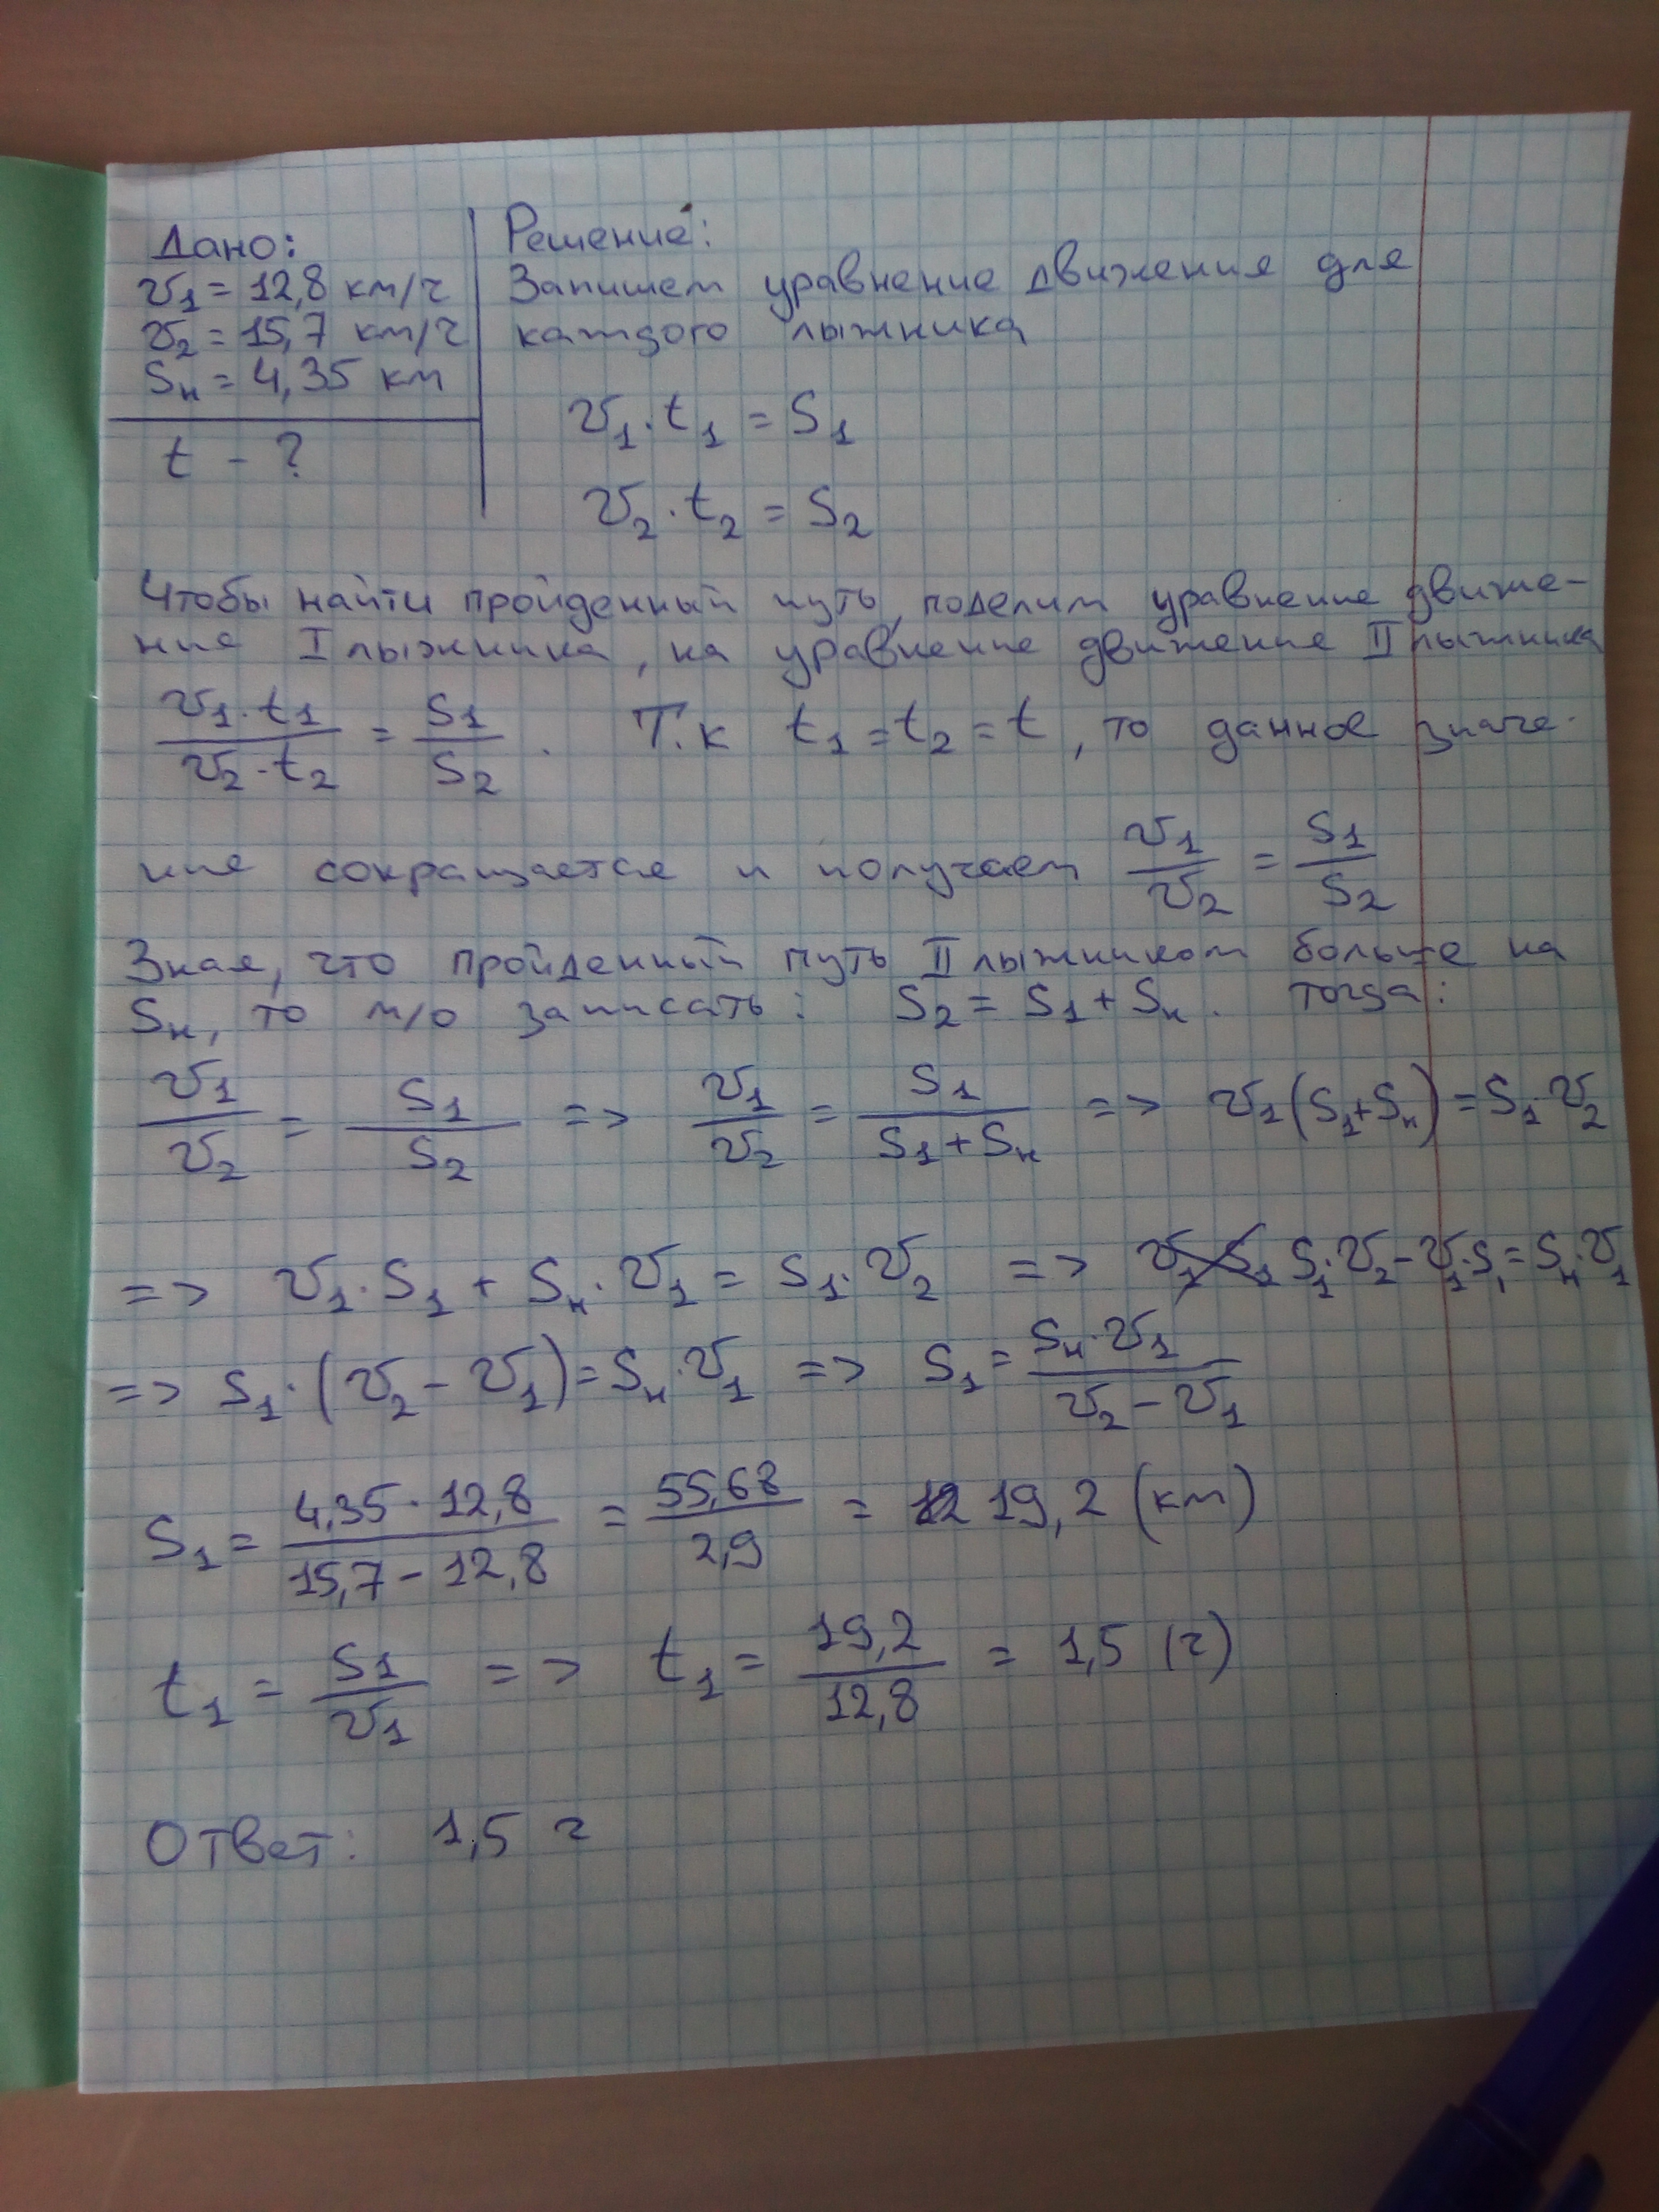 Дано:
v₁ = 12,8 км/ч
v₂ = 15,7 км/ч
Sн = 4,35 км
t - ?
Решение:
Запишем уравнение движения для
каждого лыжника
v₁ · t₁ = S₁
v₂ · t₂ = S₂
Чтобы найти пройденный путь, поделим уравнение движе-
ние I лыжника, на уравнение движение II лыжника
v₁ · t₁ / v₂ · t₂ = S₁ / S₂ . Т.к t₁ = t₂ = t, то данное значе-
ние сокращается и получаем v₁ / v₂ = S₁ / S₂
Зная, что пройденный путь II лыжником больше на
Sн, то м/о записать: S₂ = S₁ + Sн. тогда:
v₁ / v₂ = S₁ / S₂ => v₁ / v₂ = S₁ / S₁ + Sн => v₁ (S₁ + Sн) = S₁ · v₂
=> v₁ · S₁ + Sн · v₁ = S₁ · v₂ => S₁ · v₂ - v₁ · S₁ = Sн · v₁
=> S₁ · (v₂ - v₁) = Sн · v₁ => S₁ = Sн · v₁ / v₂ - v₁
S₁ = 4,35 · 12,8 / 15,7 - 12,8 = 55,68 / 2,9 = 19,2 (км)
t₁ = S₁ / v₁ => t₁ = 19,2 / 12,8 = 1,5 (ч)
Ответ: 1,5 ч